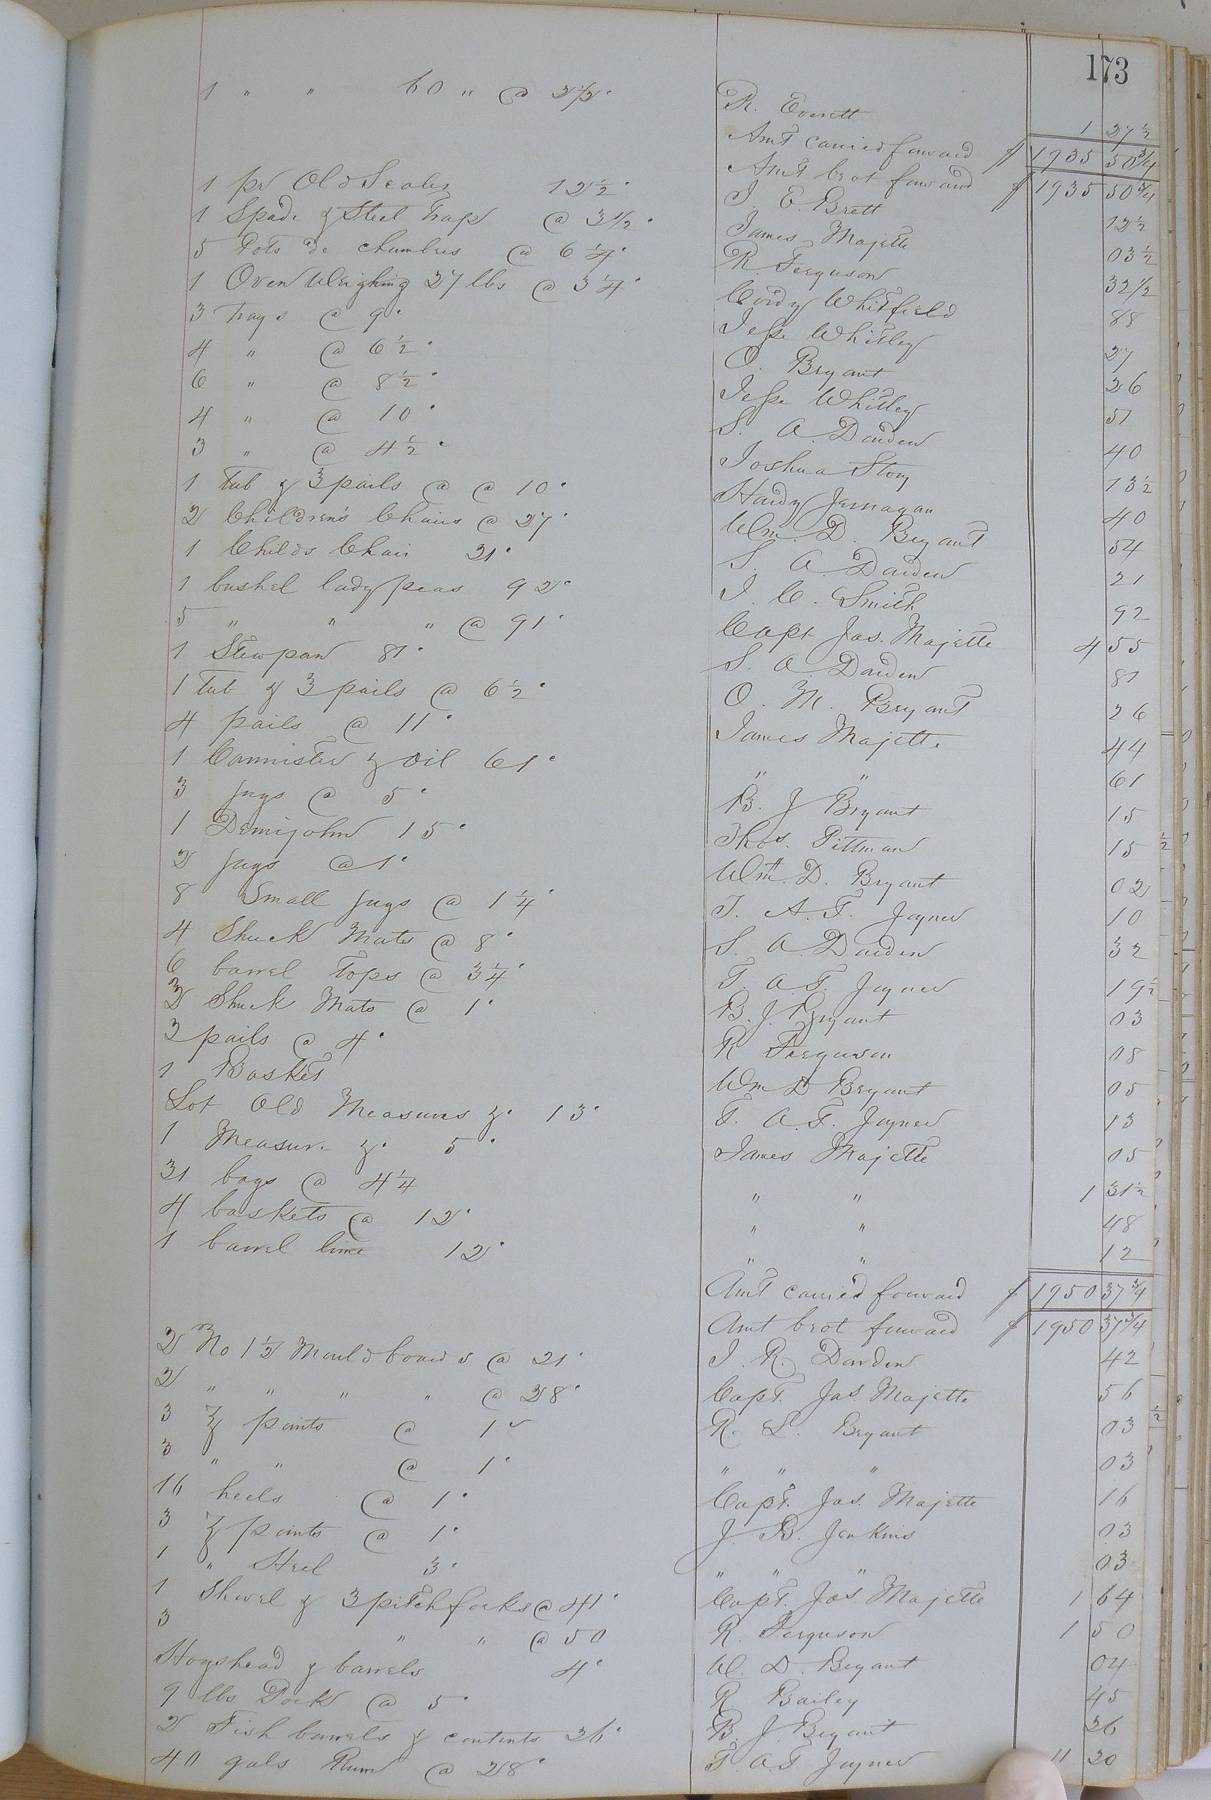 173
1 " " 60 " @ 2½ʳ R. Everett 1 27½
Amt carried forward $ 1935 50¾
Amt brot forward $ 1935 50¾
1 pr Old Scales 12½ʳ J. E. Brett 12½
1 Spade & Steel Trap @ 3½ʳ James Majette 03½
5 Pots de chambres @ 6¼ʳ R. Ferguson 32½
1 Oven weighing 27 lbs @ 3¼ʳ Cordy Whitfield 88
3 Trays @ 9ʳ Jesse Whitley 27
4 " @ 6½ʳ O. Bryant 26
6 " @ 8½ʳ Jesse Whitley 51
4 " @ 10ʳ S. A. Darden 40
3 " @ 4½ʳ Joshua Story 13½
1 Tub & 3 pails @ @ 10ʳ Hardy Jernagan 40
2 Children's Chairs @ 27ʳ Wm. D. Bryant 54
1 Childs Chair 21ʳ S. A. Darden 21
1 bushel lady peas 92ʳ J. C. Smith 92
5 " " " @ 91ʳ Capt Jas. Majette 4 55
1 Stewpan 81ʳ S. A. Darden 81
1 Tub & 3 pails @ 6½ʳ O. M. Bryant 26
4 pails @ 11ʳ James Majette 44
1 Cannister & oil 61ʳ " " 61
3 Jugs @ 5ʳ B. J Bryant 15
1 Demijohn 15ʳ Thos. Pittman 15
2 Jugs @ 1ʳ Wm D. Bryant 02
8 Small Jugs @ 1¼ʳ T. A. T. Joyner 10
4 Shuck Mats @ 8ʳ S. A. Darden 32
6 barrel Tops @ 3¼ʳ T. A. T. Joyner 19½
3 Shuck Mats @ 1ʳ B. J. Bryant 03
2 pails @ 4ʳ R Ferguson 08
1 Basket Wm D Bryant 05
Lot Old Measures &ʳ 13ʳ T. A. T. Joyner 13
1 Measure &ʳ 5ʳ James Majette 05
31 bags @ 4¼ " " 1 31½
4 baskets @ 12ʳ " " 48
1 barrel lime 12ʳ " " 12
Amt carried forward $ 1950 37¾
Amt brot forward $ 1950 37¾
2 No 1½ Mouldboards @ 21ʳ J. R. Darden 42
2 " " " " @ 28ʳ Capt. Jas Majette 56
3 & points @ 1ʳ R. S. Bryant 03
3 " " @ 1ʳ " " " 03
16 heels @ 1ʳ Capt. Jas. Majette 16
3 & points @ 1ʳ J. B. Jenkins 03
1 " Steel 3ʳ " " " 03
1 Shovel & 3 pitchforks @ 41ʳ Capt. Jas. Majette 1 64
3 " " @ 50 R. Ferguson 1 50
Hogshead & barrels 4ʳ W. D. Bryant 04
9 lbs Pork @ 5ʳ R Bailey 45
2 Fish barrels & contents 26ʳ B. J. Bryant 26
40 gals Rum @ 28ʳ T. A T Joyner 11 20